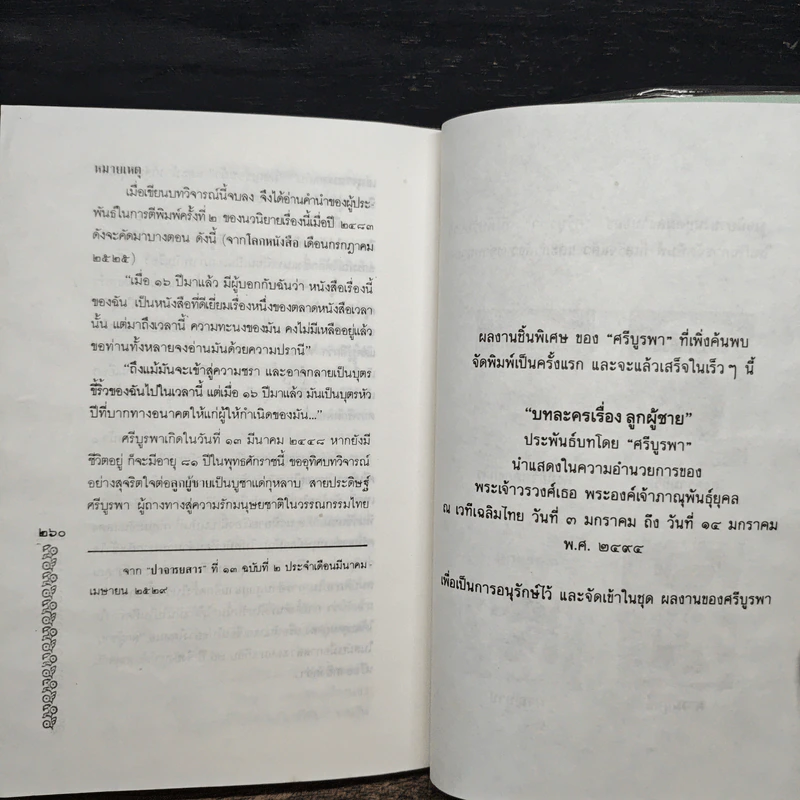 หมายเหตุ
เมื่อเขียนบทวิจารณ์นี้จบลง จึงได้อ่านคำนำของผู้ประ-
พันธ์ในการตีพิมพ์ครั้งที่ ๒ ของนวนิยายเรื่องนี้เมื่อปี ๒๔๘๓
ดังจะคัดมาบางตอน ดังนี้ (จากโลกหนังสือ เดือนกรกฎาคม
๒๕๒๕)
"เมื่อ ๑๖ ปีมาแล้ว มีผู้บอกกับฉันว่า หนังสือเรื่องนี้
ของฉัน เป็นหนังสือที่ดีเยี่ยมเรื่องหนึ่งของตลาดหนังสือเวลา
นั้น แต่มาถึงเวลานี้ ความทะนงของมัน คงไม่มีเหลืออยู่แล้ว
ขอท่านทั้งหลายจงอ่านมันด้วยความปรานี"
"ถึงแม้มันจะเข้าสู่ความชรา และอาจกลายเป็นบุตร
ขี้ริ้วของฉันไปในเวลานี้ แต่เมื่อ ๑๖ ปีมาแล้ว มันเป็นบุตรหัว
ปีที่บากทางอนาคตให้แก่ผู้ให้กำเนิดของมัน..."
ศรีบูรพาเกิดในวันที่ ๑๓ มีนาคม ๒๔๔๘ หากยังมี
ชีวิตอยู่ ก็จะมีอายุ ๘๑ ปีในพุทธศักราชนี้ ขออุทิศบทวิจารณ์
อย่างสุจริตใจต่อลูกผู้ชายเป็นบูชาแด่กุหลาบ สายประดิษฐ์
ศรีบูรพา ผู้ถางทางสู่ความรักมนุษยชาติในวรรณกรรมไทย
๒๖๐
จาก "ปาจารยสาร" ที่ ๑๓ ฉบับที่ ๒ ประจำเดือนมีนาคม-
เมษายน ๒๕๒๙
ผลงานชิ้นพิเศษ ของ "ศรีบูรพา" ที่เพิ่งค้นพบ
จัดพิมพ์เป็นครั้งแรก และจะแล้วเสร็จในเร็วๆ นี้
"บทละครเรื่อง ลูกผู้ชาย"
ประพันธ์บทโดย "ศรีบูรพา"
นำแสดงในความอำนวยการของ
พระเจ้าวรวงศ์เธอ พระองค์เจ้าภาณุพันธุ์ยุคล
ณ เวทีเฉลิมไทย วันที่ ๓ มกราคม ถึง วันที่ ๑๔ มกราคม
พ.ศ. ๒๔๙๔
เพื่อเป็นการอนุรักษ์ไว้ และจัดเข้าในชุด ผลงานของศรีบูรพา